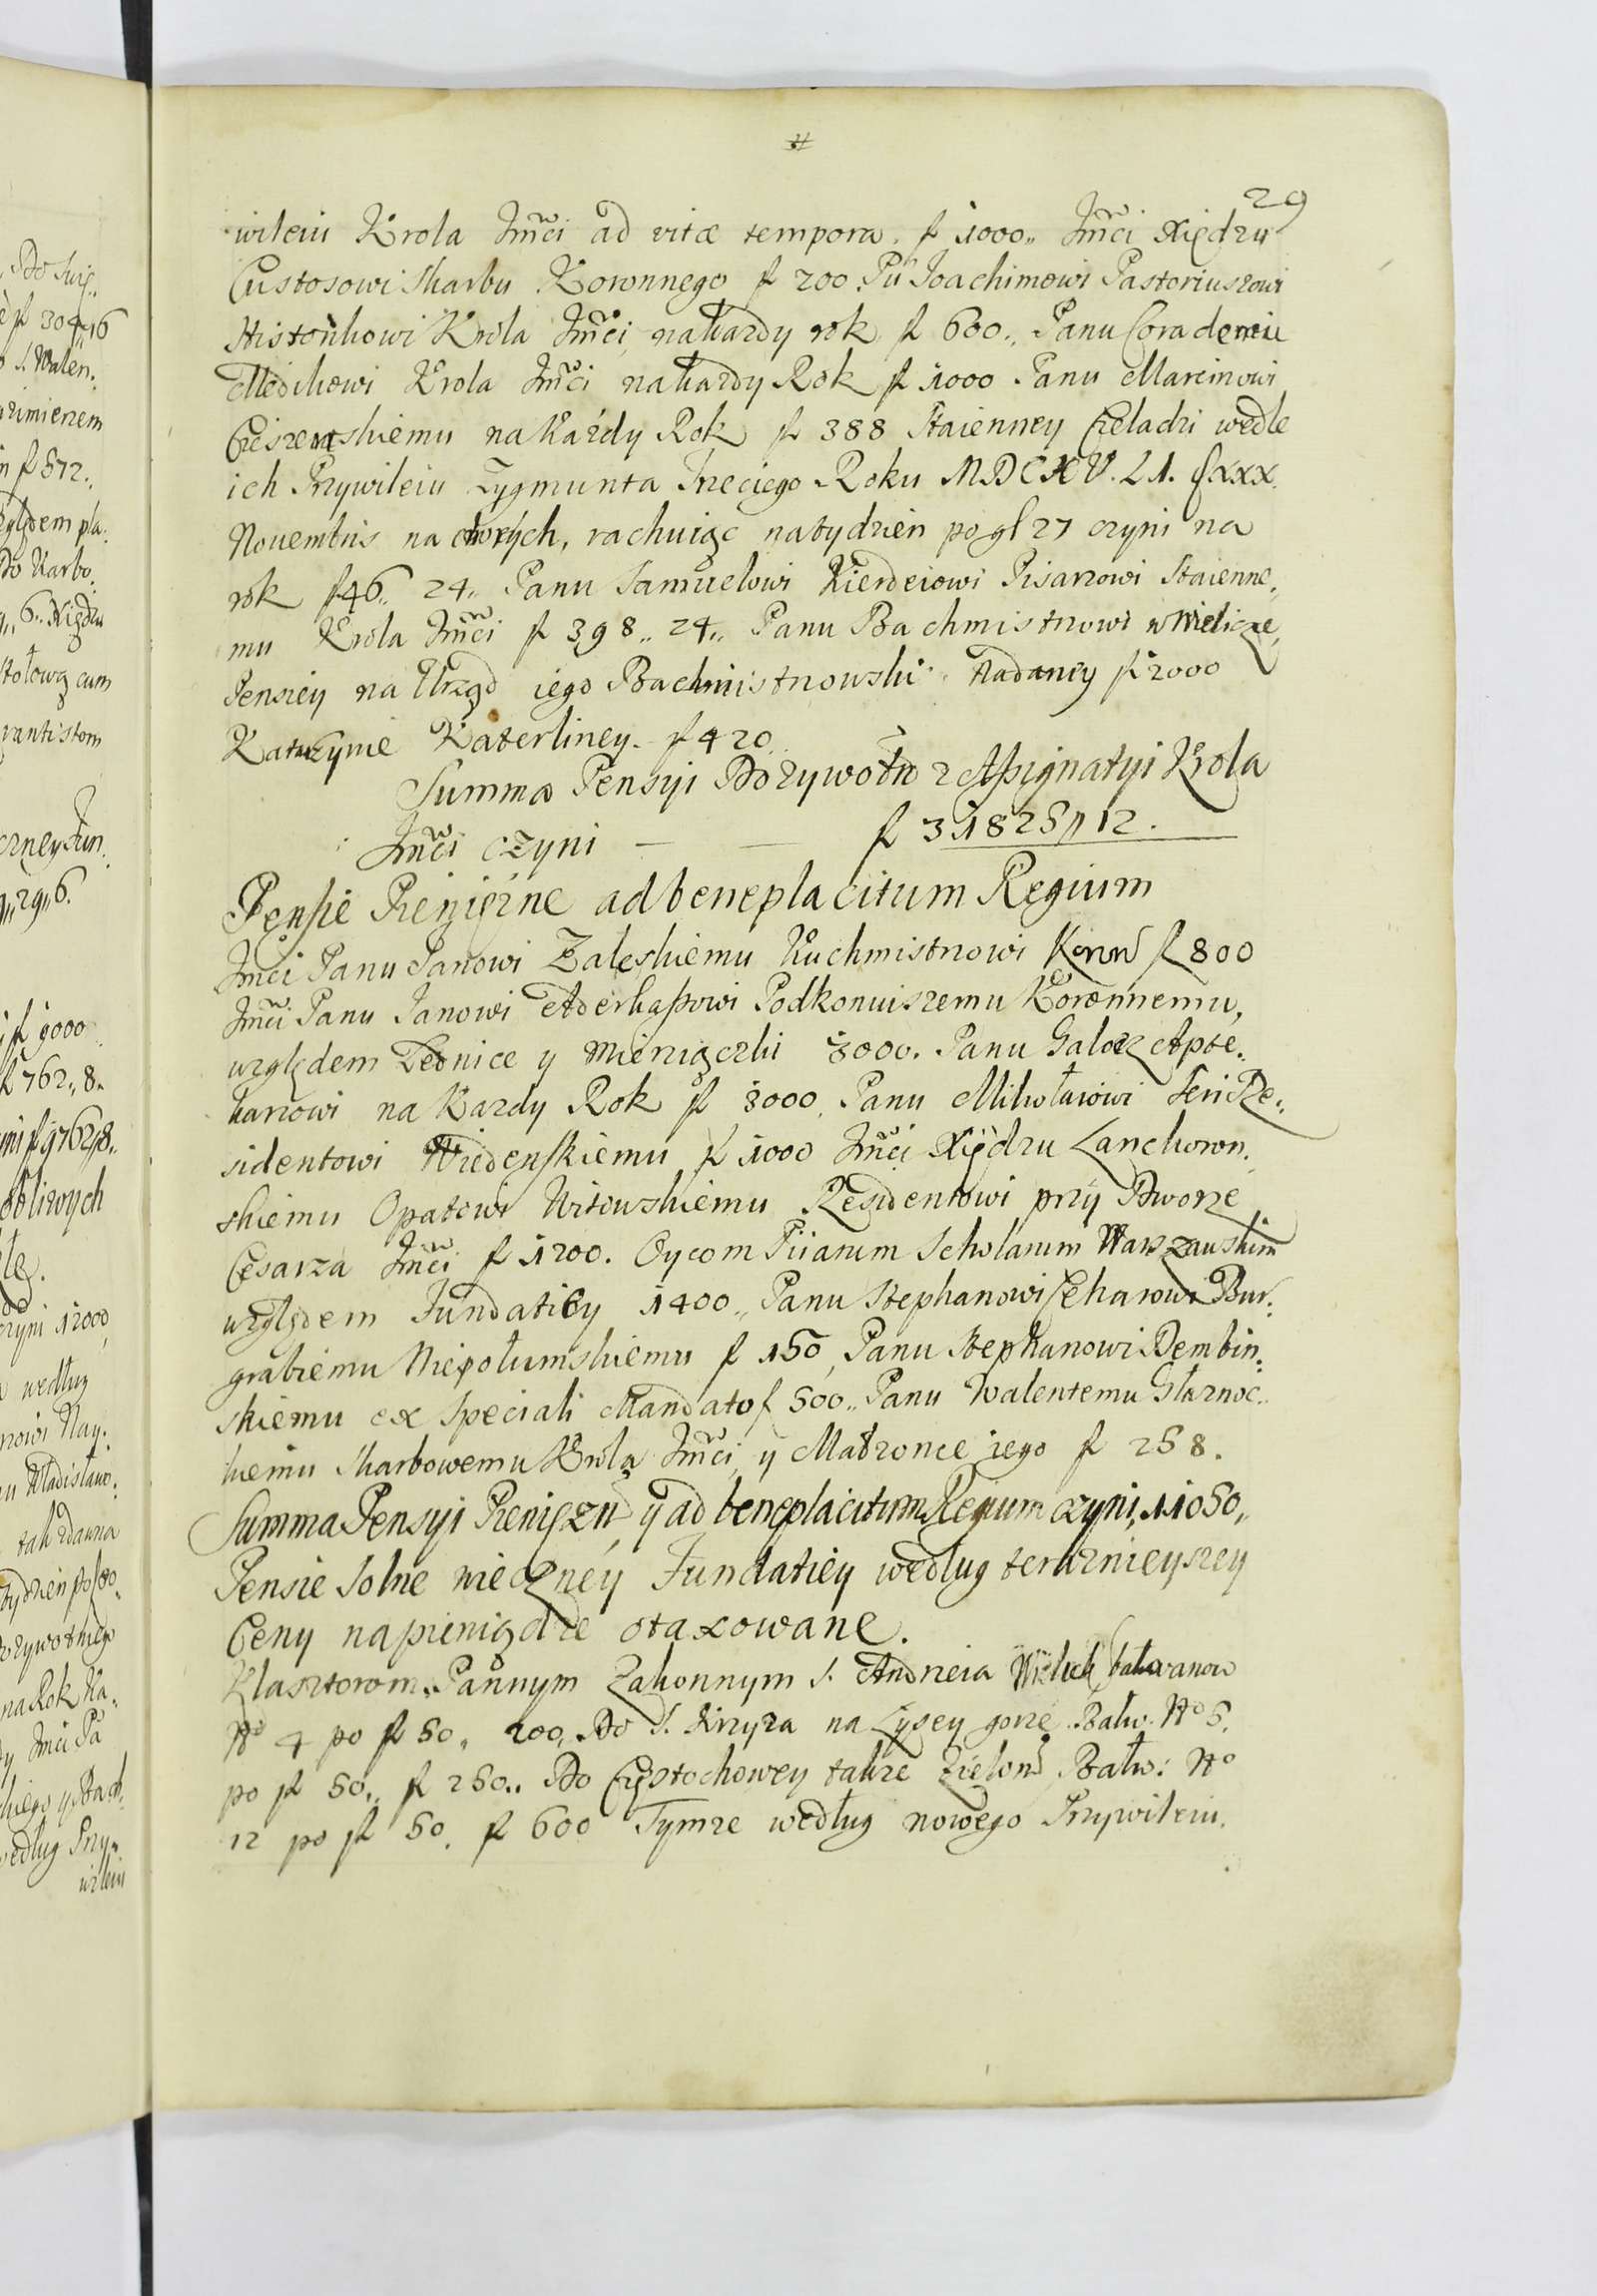 29
wileiu Krola Jmci ad vitæ tempora. f 1000,, Jmci Xiędzu
Custosowi Skarbu Koronnego f 200. Pu Joachimowi Pastoriuszowi
Historikowi Krola Jmci nakazdy rok f 600,, Panu
Medikowi Krola Jmci nakazdy Rok f 1000. Panu Marcinowi
na Kazdy Rok f 388 Staienney Czeladzi wedle
ich Przywileiu Zygmunta Trzeciego Roku
Nouembris na chorych, rachuiąc natydzien po gl 27 czyni na
rok f 46,, 24,, Panu Samuelowi Kierdeiowi Pisarzowi Staienne,,
mu Krola Jmci f 398,, 24,, Panu Bachmistrzowi w Wieliczce,
Pensiey na Urząd iego Bachmistrzowski Nadaney f 2000
Katarzynie Katerliney. f 420.
Summa Pensyi Dozywotn z Assignatyi Krola
Jmci czyni — — f 31825,,12.
Pensie Pienięzne ad beneplacitum Regium
Jmci Panu Janowi Zaleskiemu Kuchmistrzowi Koron f 800
Jmci Panu Janowi Aderkassowi Podkoniuszemu Koronnemu,
względem Lednice y Mierziączki 3000. Panu Apte,,
karzowi na Kazdy Rok f 3000, Panu Mikołaiowi Re,,
sidentowi Wiedenskiemu f 1000 Jmci Xiędzu Lanckoron,,
skiemu Opatowi Witowskiemu Residentowi przy Dworze
Cesarza Jmci f 1200. Oycom Piiarum Scholarum Warszauskim
względem Fundatiey 1400,, Panu Stephanowi Bur,,
grabiemu Niepołumskiemu f 150, Panu Stephanowi Dembin,,
skiemu ex speciali Mandato f 500,, Panu Walentemu
kiemu Skarbowemu Krola Jmci, y Małzonce iego f 258.
Summa Pensyi Pieniężn y ad beneplacitum Regium czyni, 11050,,
Pensie Solne wieczney Fundatiey według teraznieyszey
Ceny napieniądze otaxowane.
Klasztorom Pannym Zakonnym S. Andrzeia Bałwanow
No 4 po f 50,, 200,, Do S. Krzyza na Łysey gorze Bałw. No 5.
po f 50,, f 250.. Do Częstochowey takze Zielon Bałw: No
12 po f 50. f 600 Tymze według nowego Przywileiu.